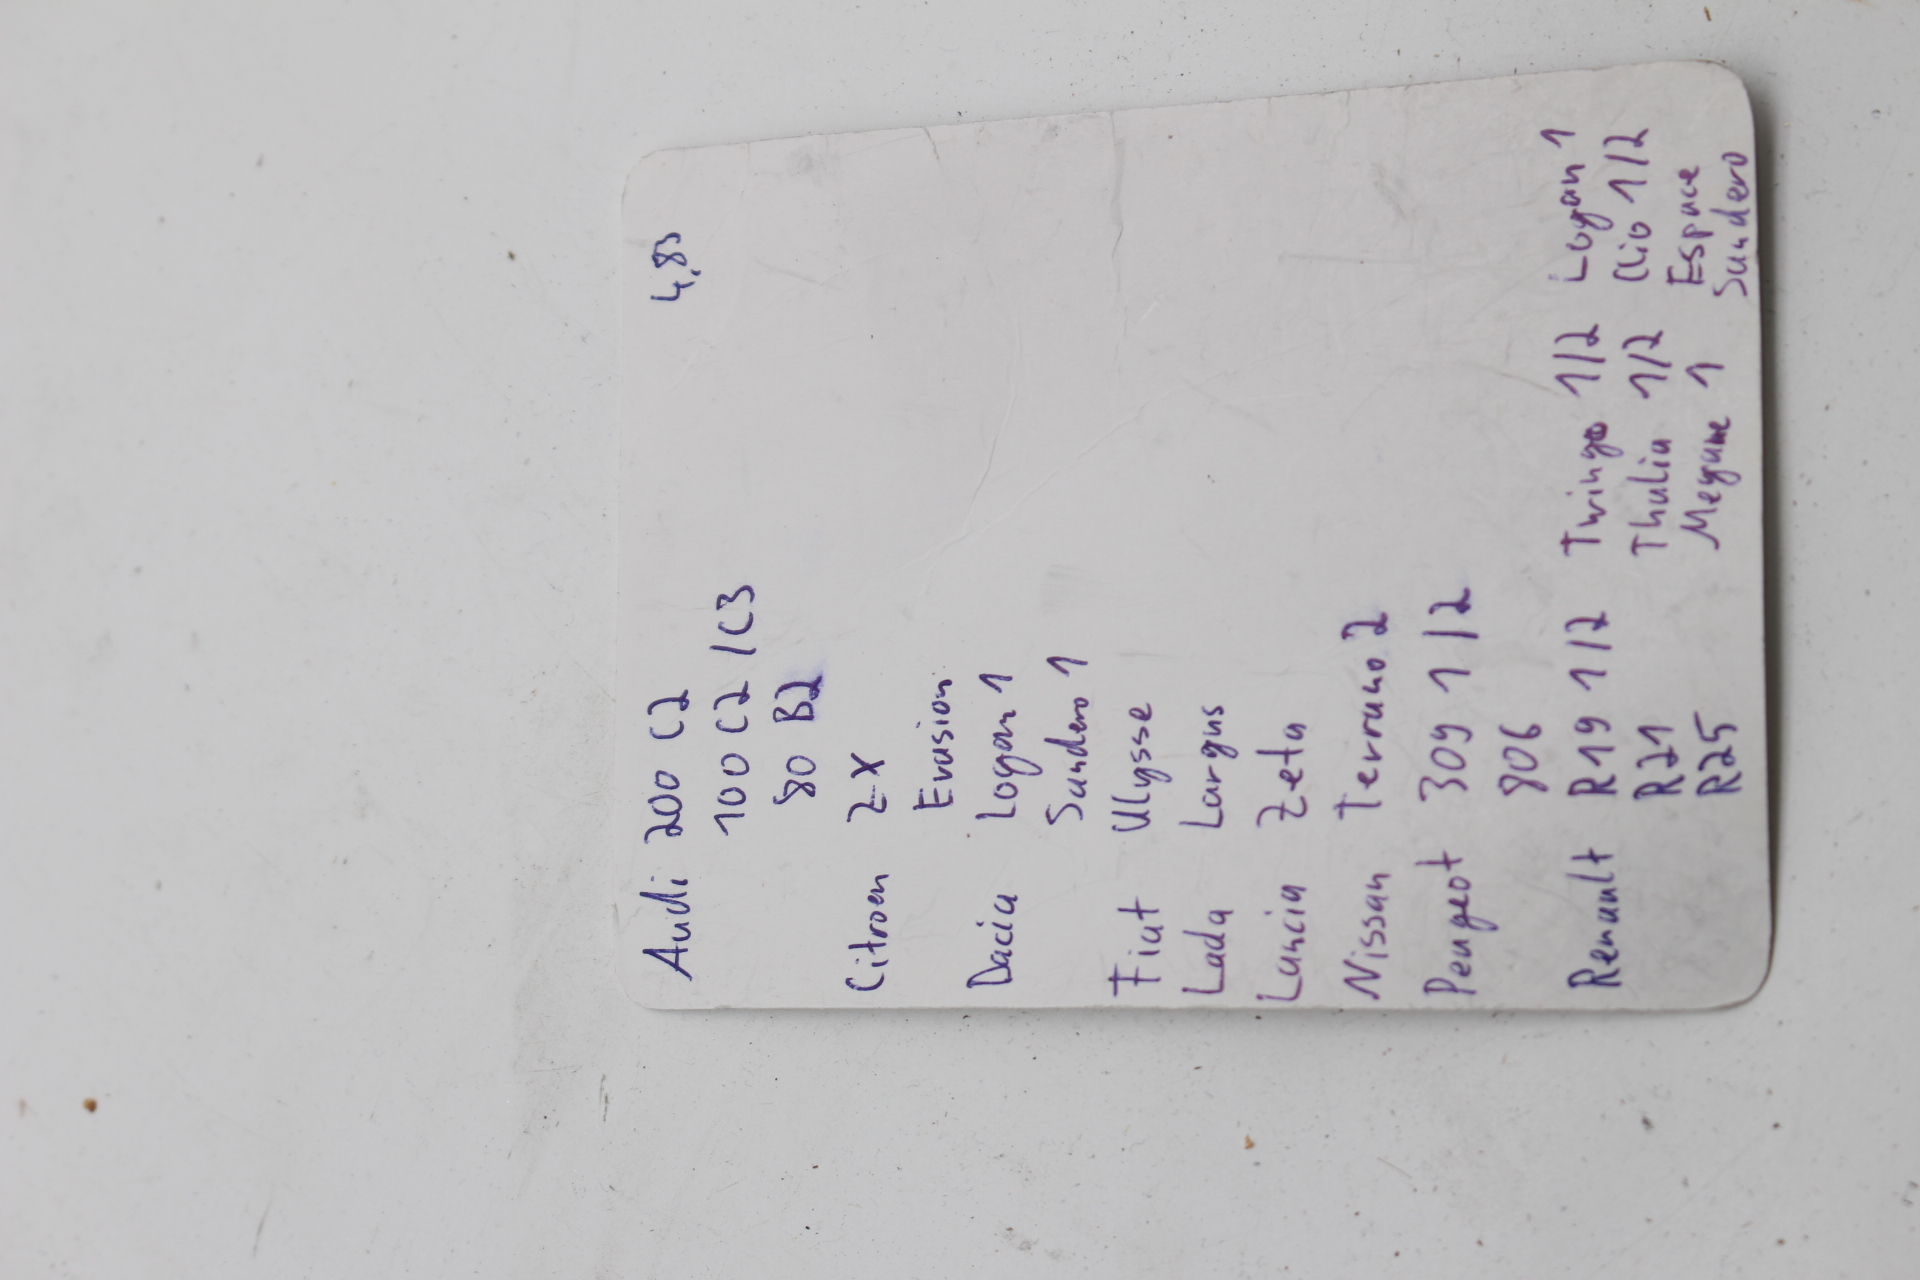 Audi 200 C2 4,83
100 C2 / C3
80 B2
Citroen ZX
Evasion
Dacia Logan 1
Sandero 1
Fiat Ulysse
Lada Largus
Lancia Zeta
Nissan Terrano 2
Peugeot 309 1/2
806
Renault R19 1/2 Twingo 1/2 Logan 1
R21 Thalia 1/2 Clio 1/2
R25 Megane 1 Espace
Sandero